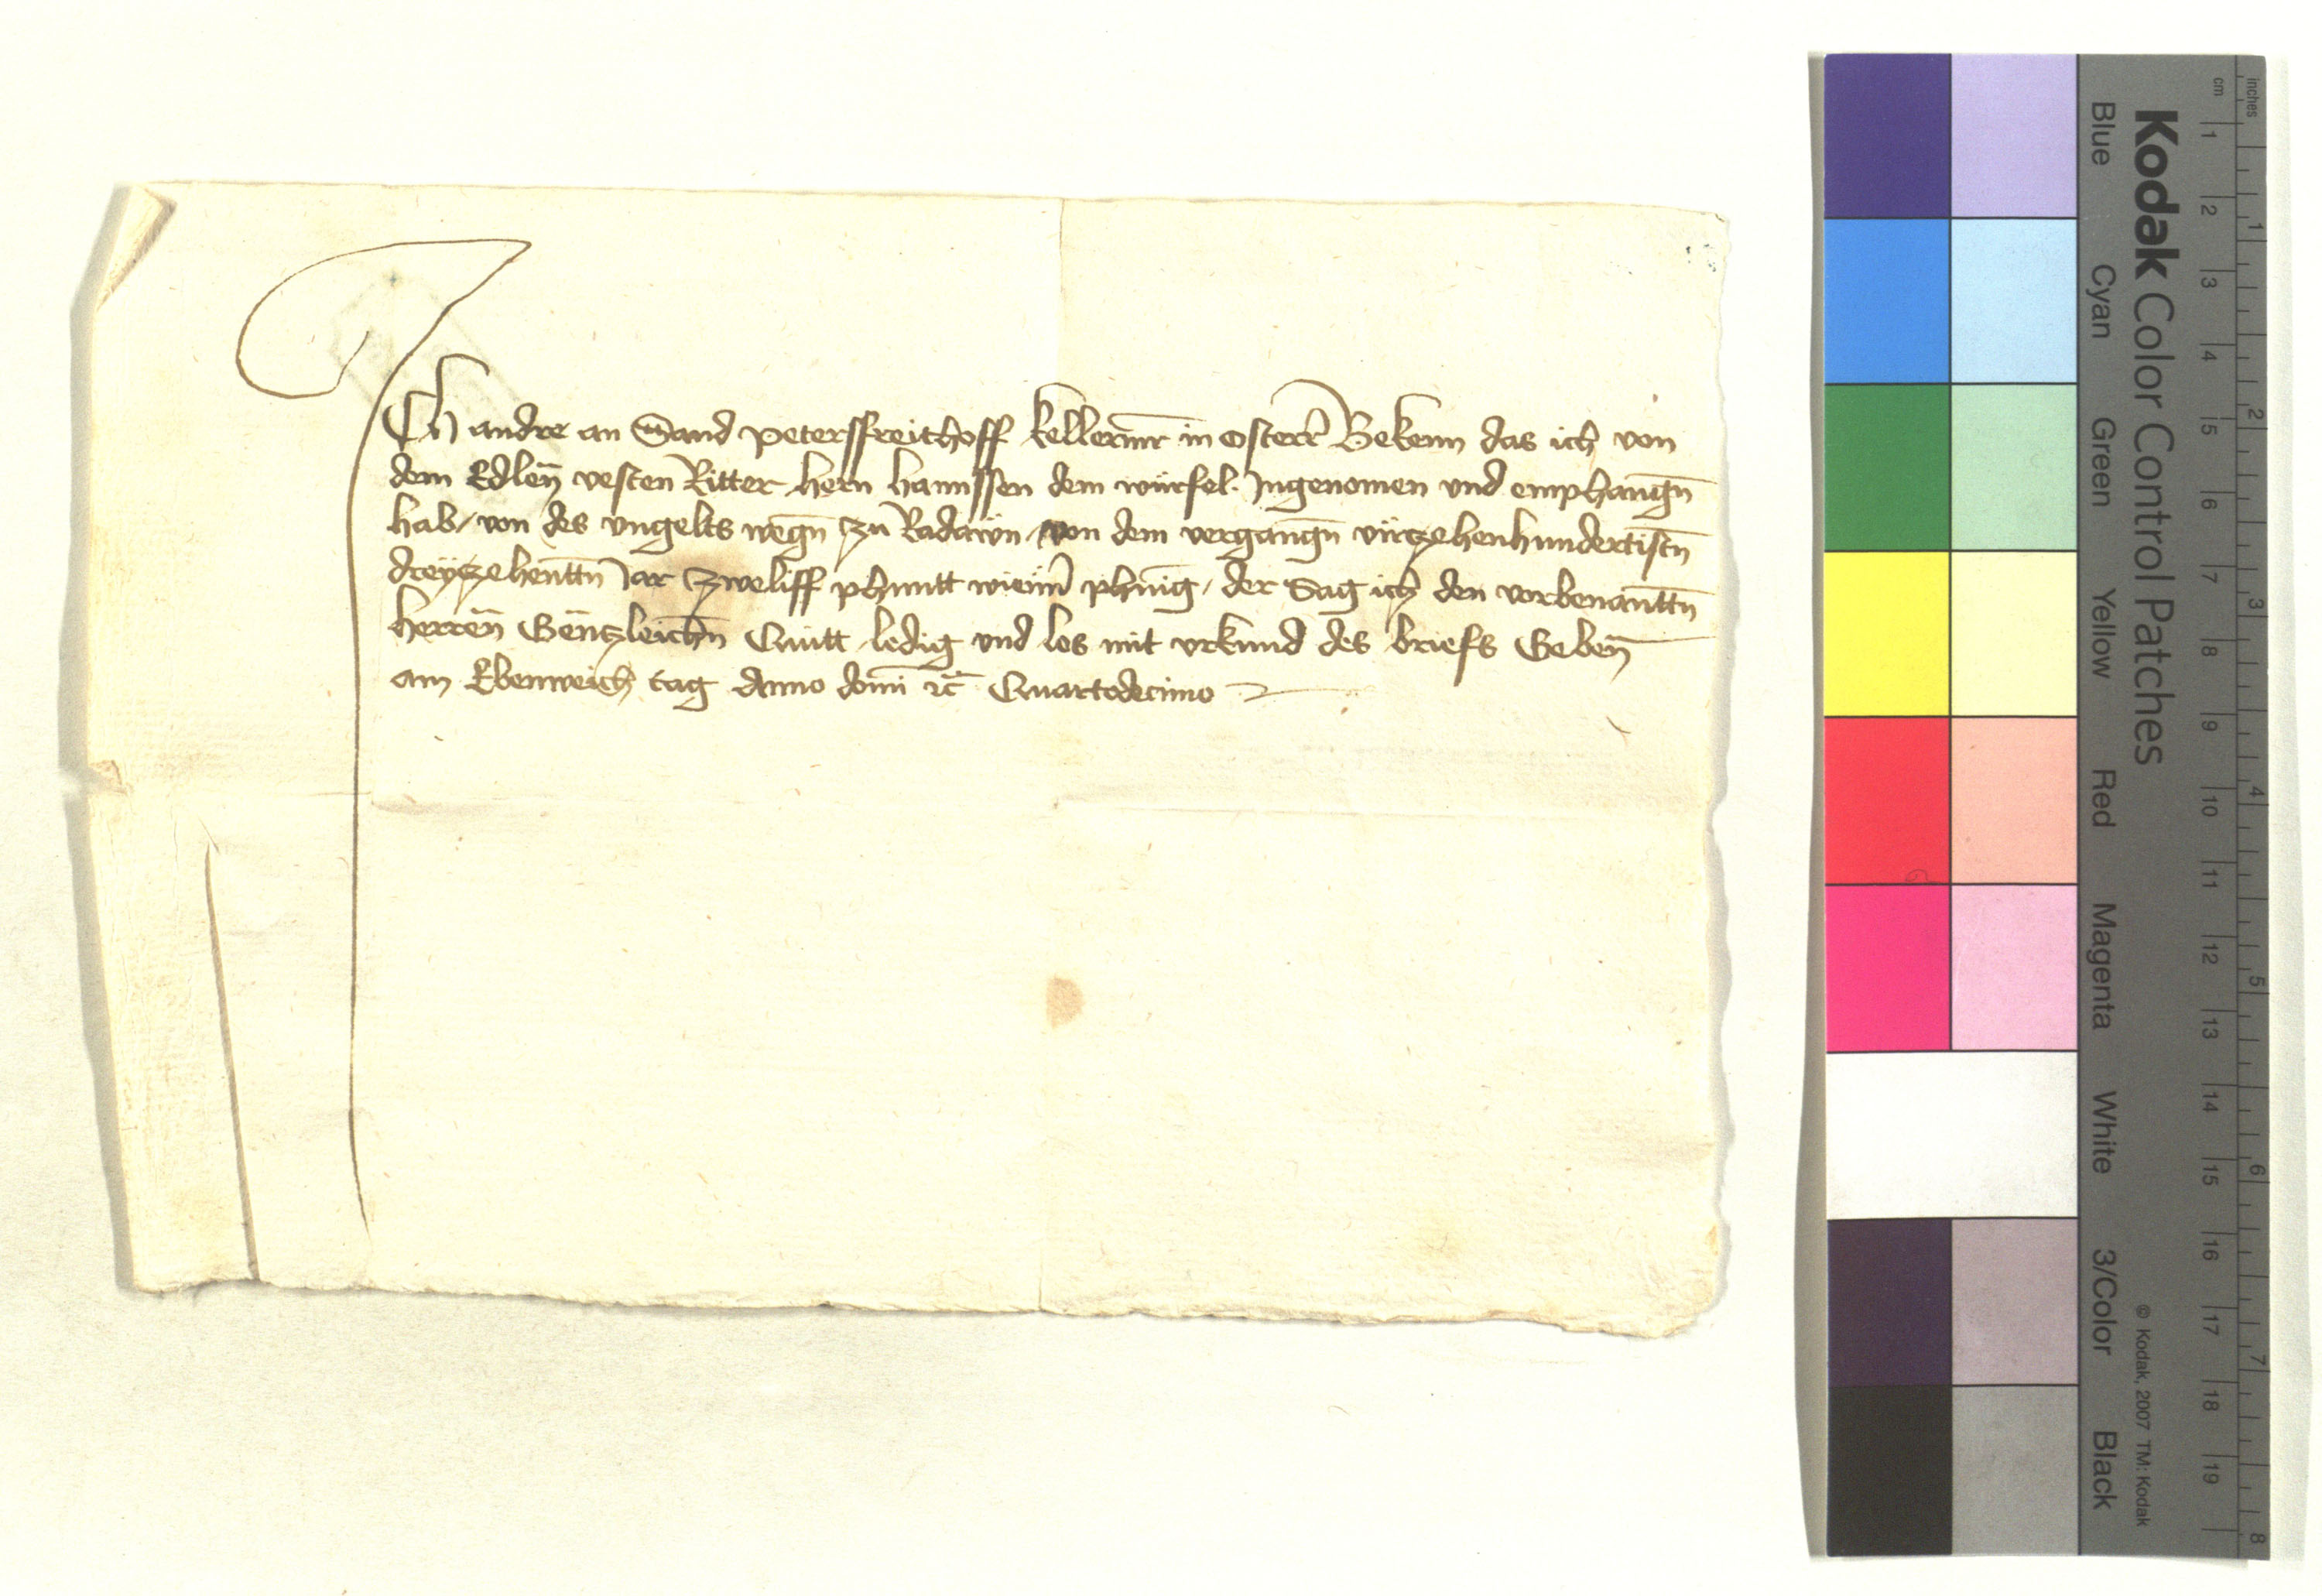 ICh andre an Sand petersffreithoff kellermr̄ in osterr̄ Bekenn das ich von
dem Edlen̄ vesten Ritter hern hannssen dem würfel. Ingenomen vnd emphangn̄
hab / von des vngelts wegn̄ zu Radawn / von dem vergangn̄ virczehenhundertistn̄
dreyczehenttn̄ Jar zweliff phuntt wienn̄ phnīg / der Sag ich den vorbenanttn̄
herren̄ Genczleichn̄ Quitt ledig vnd los mit vrkund des briefs Geben̄
am Ebenweich tag Anno domī ꝛc̄ Quartodecimo
Kodak Color Control Patches
Blue Cyan Green Yellow Red Magenta White 3/Color Black
© Kodak, 2007 TM: Kodak
inches 1 2 3 4 5 6 7 8
cm 1 2 3 4 5 6 7 8 9 10 11 12 13 14 15 16 17 18 19